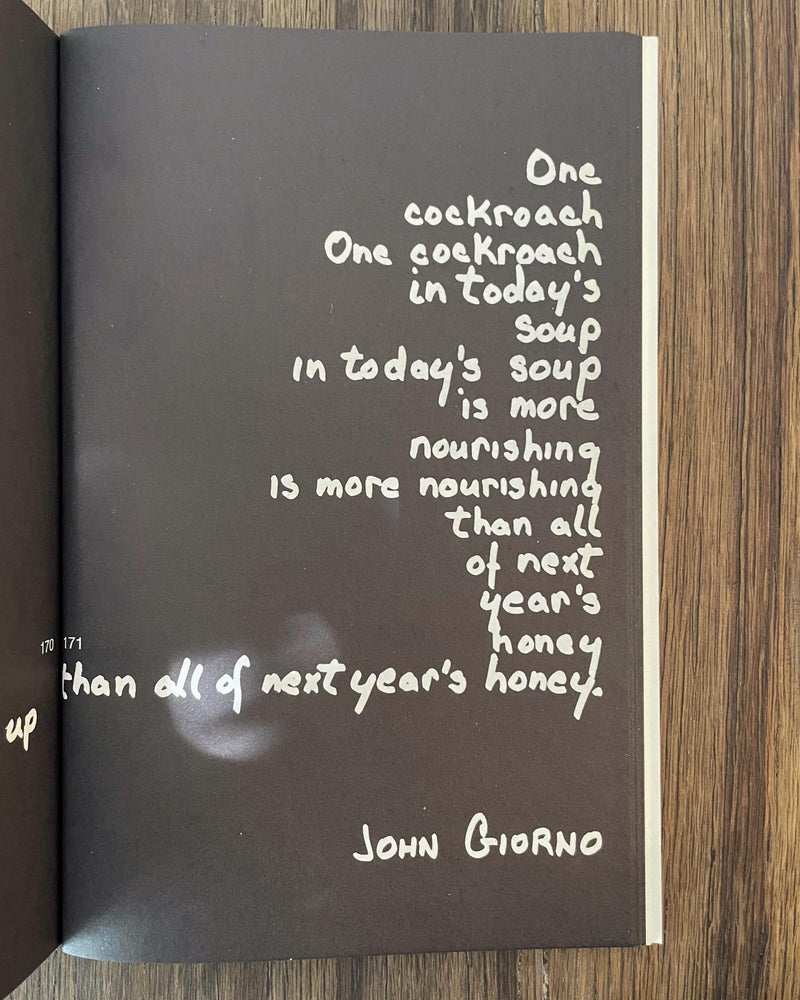 One
cockroach
One cockroach
in today's
soup
in today's soup
is more
nourishing
is more nourishing
than all
of next
year's
honey
170 171
than all of next year's honey.
up
JOHN GIORNO